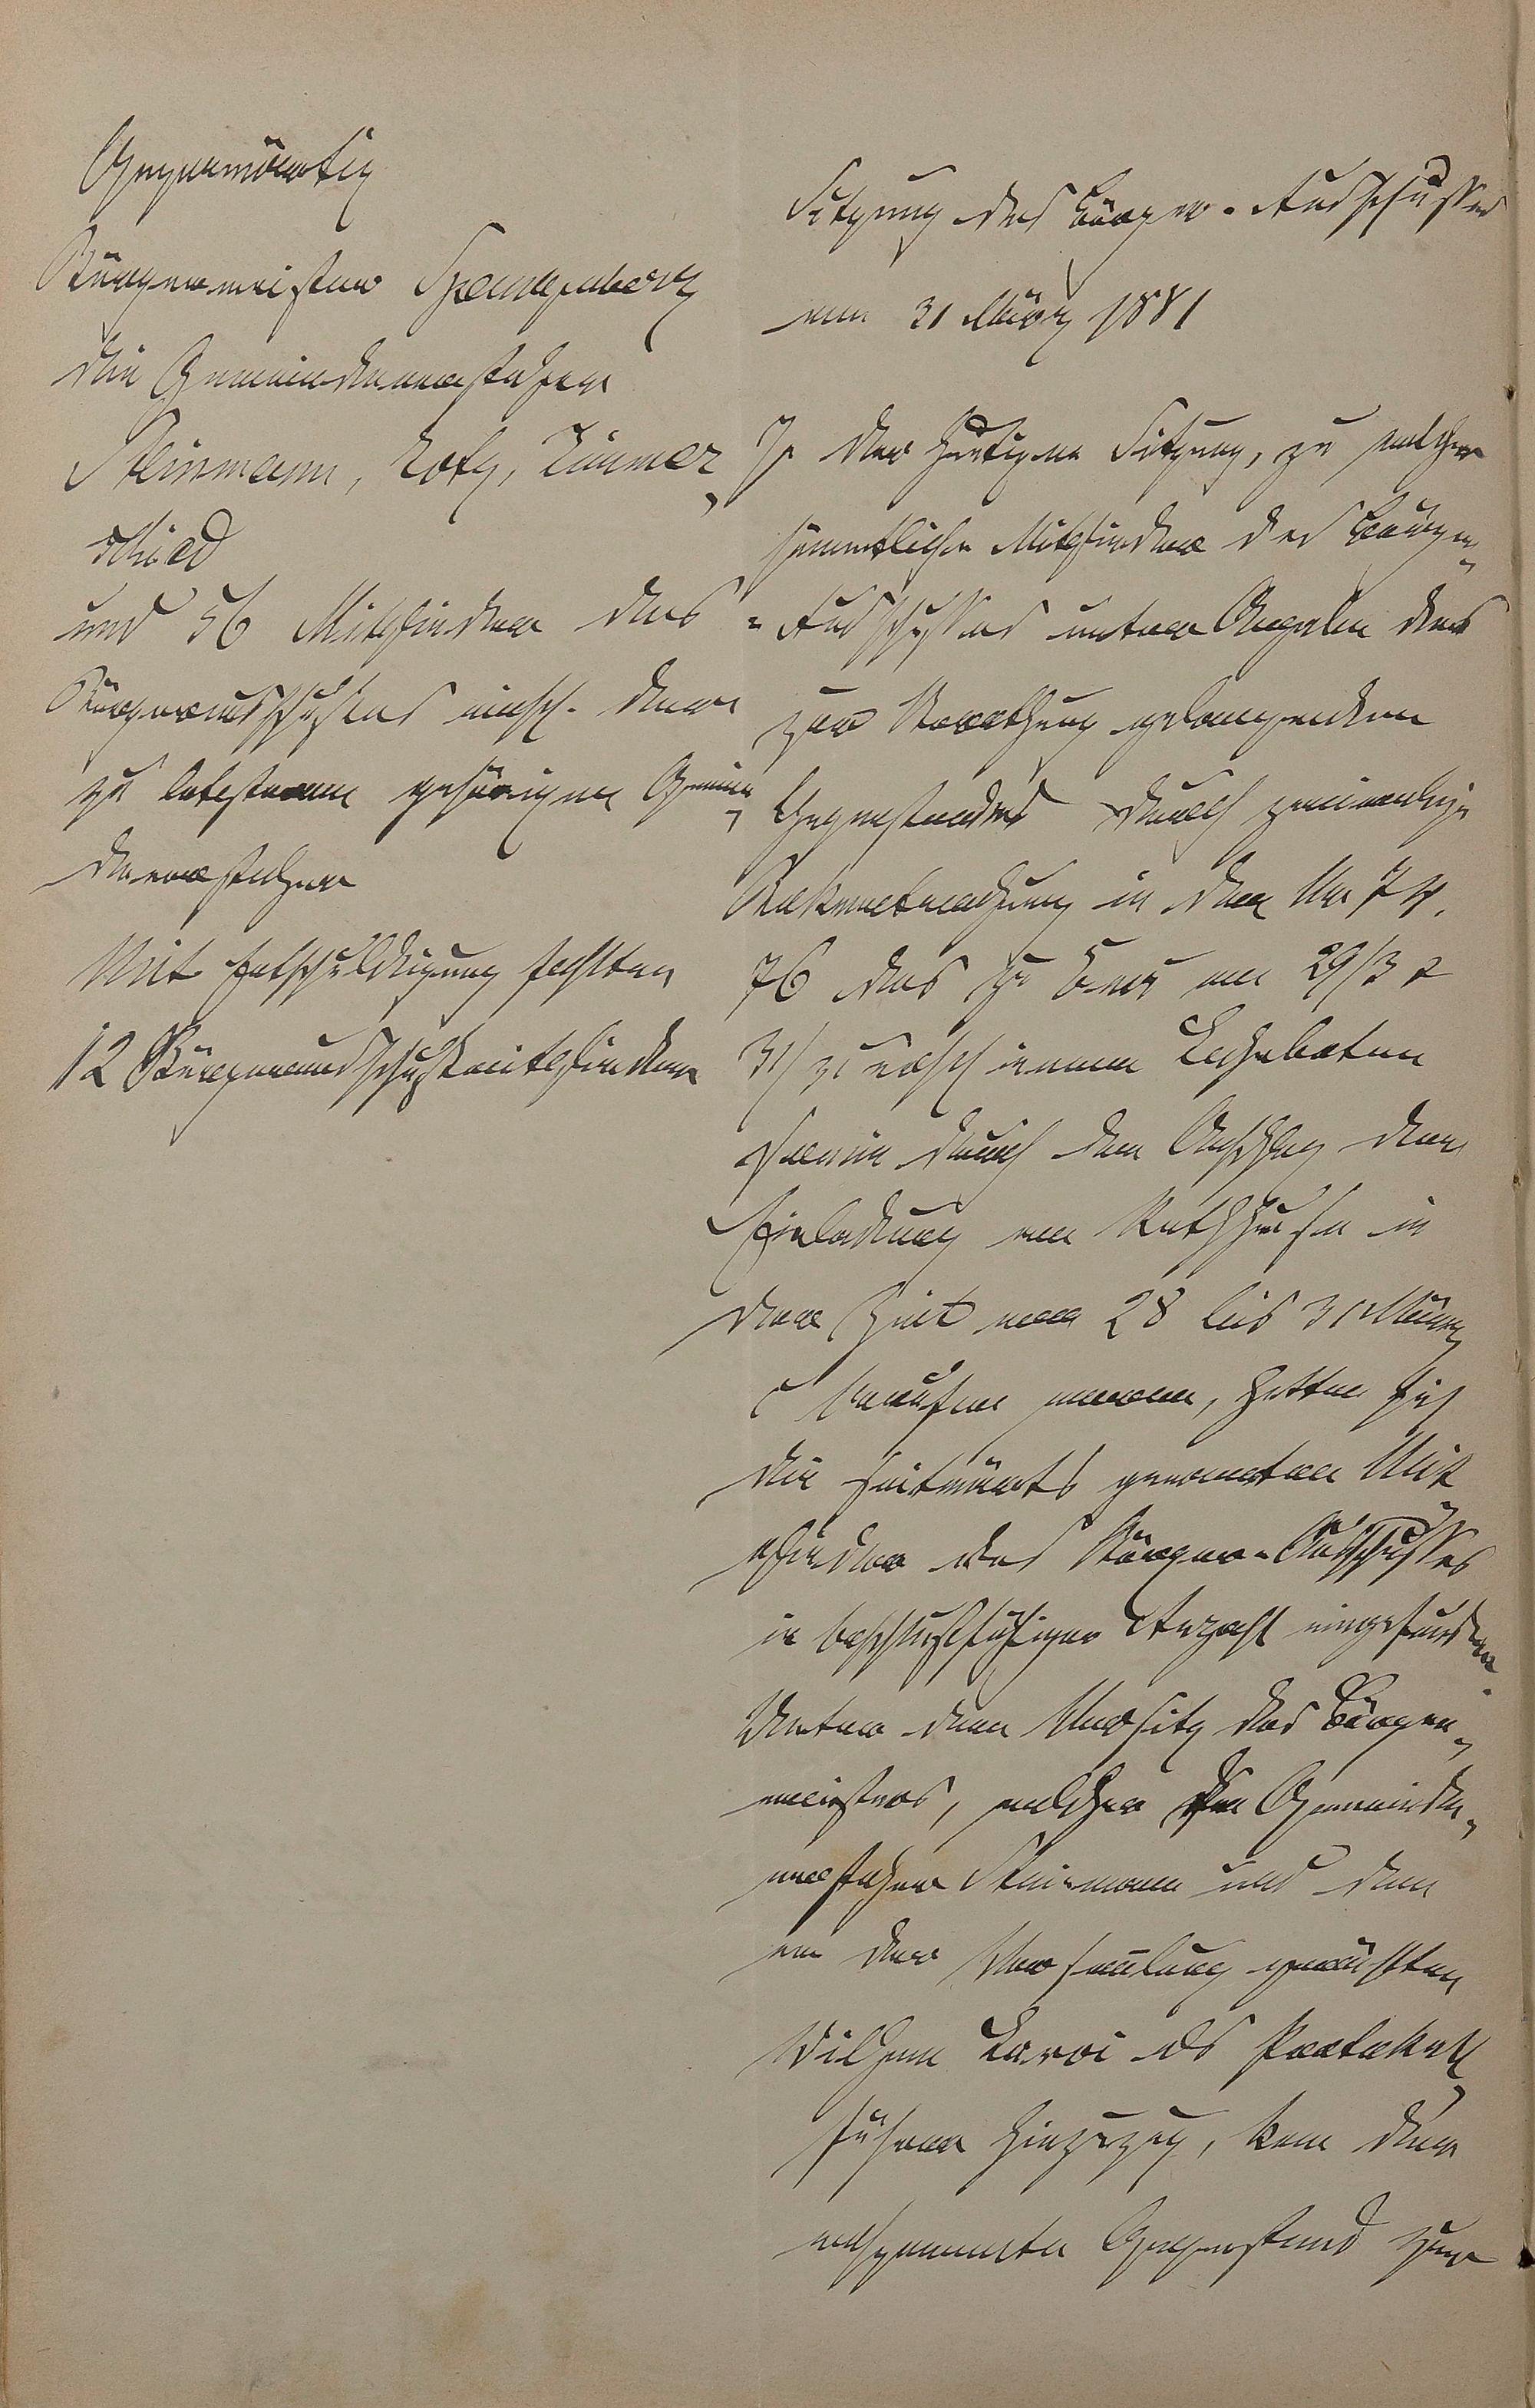 Gegenwärtig
Bürgermeister Spangenberg
die Gemeindevorsteher
Steinmann, Lotz, Zimmer¬
schied
und 56 Mitglieder des
Bürgerausschusses einschl. der
zu letzterem gehörigen Gemein¬
devorsteher
Mit Entschuldigung fehlten
12 Bürgerausschußmitglieder
Sitzung des Bürger-Ausschusses
vom 31 März 1881
In der heutigen Sitzung, zu welcher
sämmtliche Mitglieder des Bürger¬
-Ausschusses unter Angabe des
zur Berathung gelangenden
Gegenstandes durch zweimalige
Bekanntmachung in den Nr 74.
76 des zu am 29/3 &
31/ erschienenen
sowie durch den Anschlag der
Einladung am Rathhause in
der Zeit vom 28 bis 31 März
c berufen waren, hatten sich
die seitwärts genannten Mit
glieder des Bürger-Ausschusses
in beschlußfähiger Anzahl eingefunden.
Unter dem Vorsitz des Bürger¬
meisters, welcher den Gemeinde¬
vorsteher Steinmann und den
von der Versammlung gewählten
Wilhelm als Protokoll¬
führer hinzuzog, kam der
nachgenannte Gegenstand zur